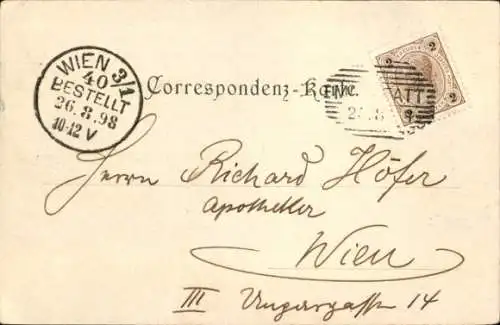 WIEN 3/1
40
BESTELLT
26.8.98
10-12 V
Correspondenz-Karte.
2 2
Herrn Richard Höfer
Apotheker
Wien
III Ungargasse 14